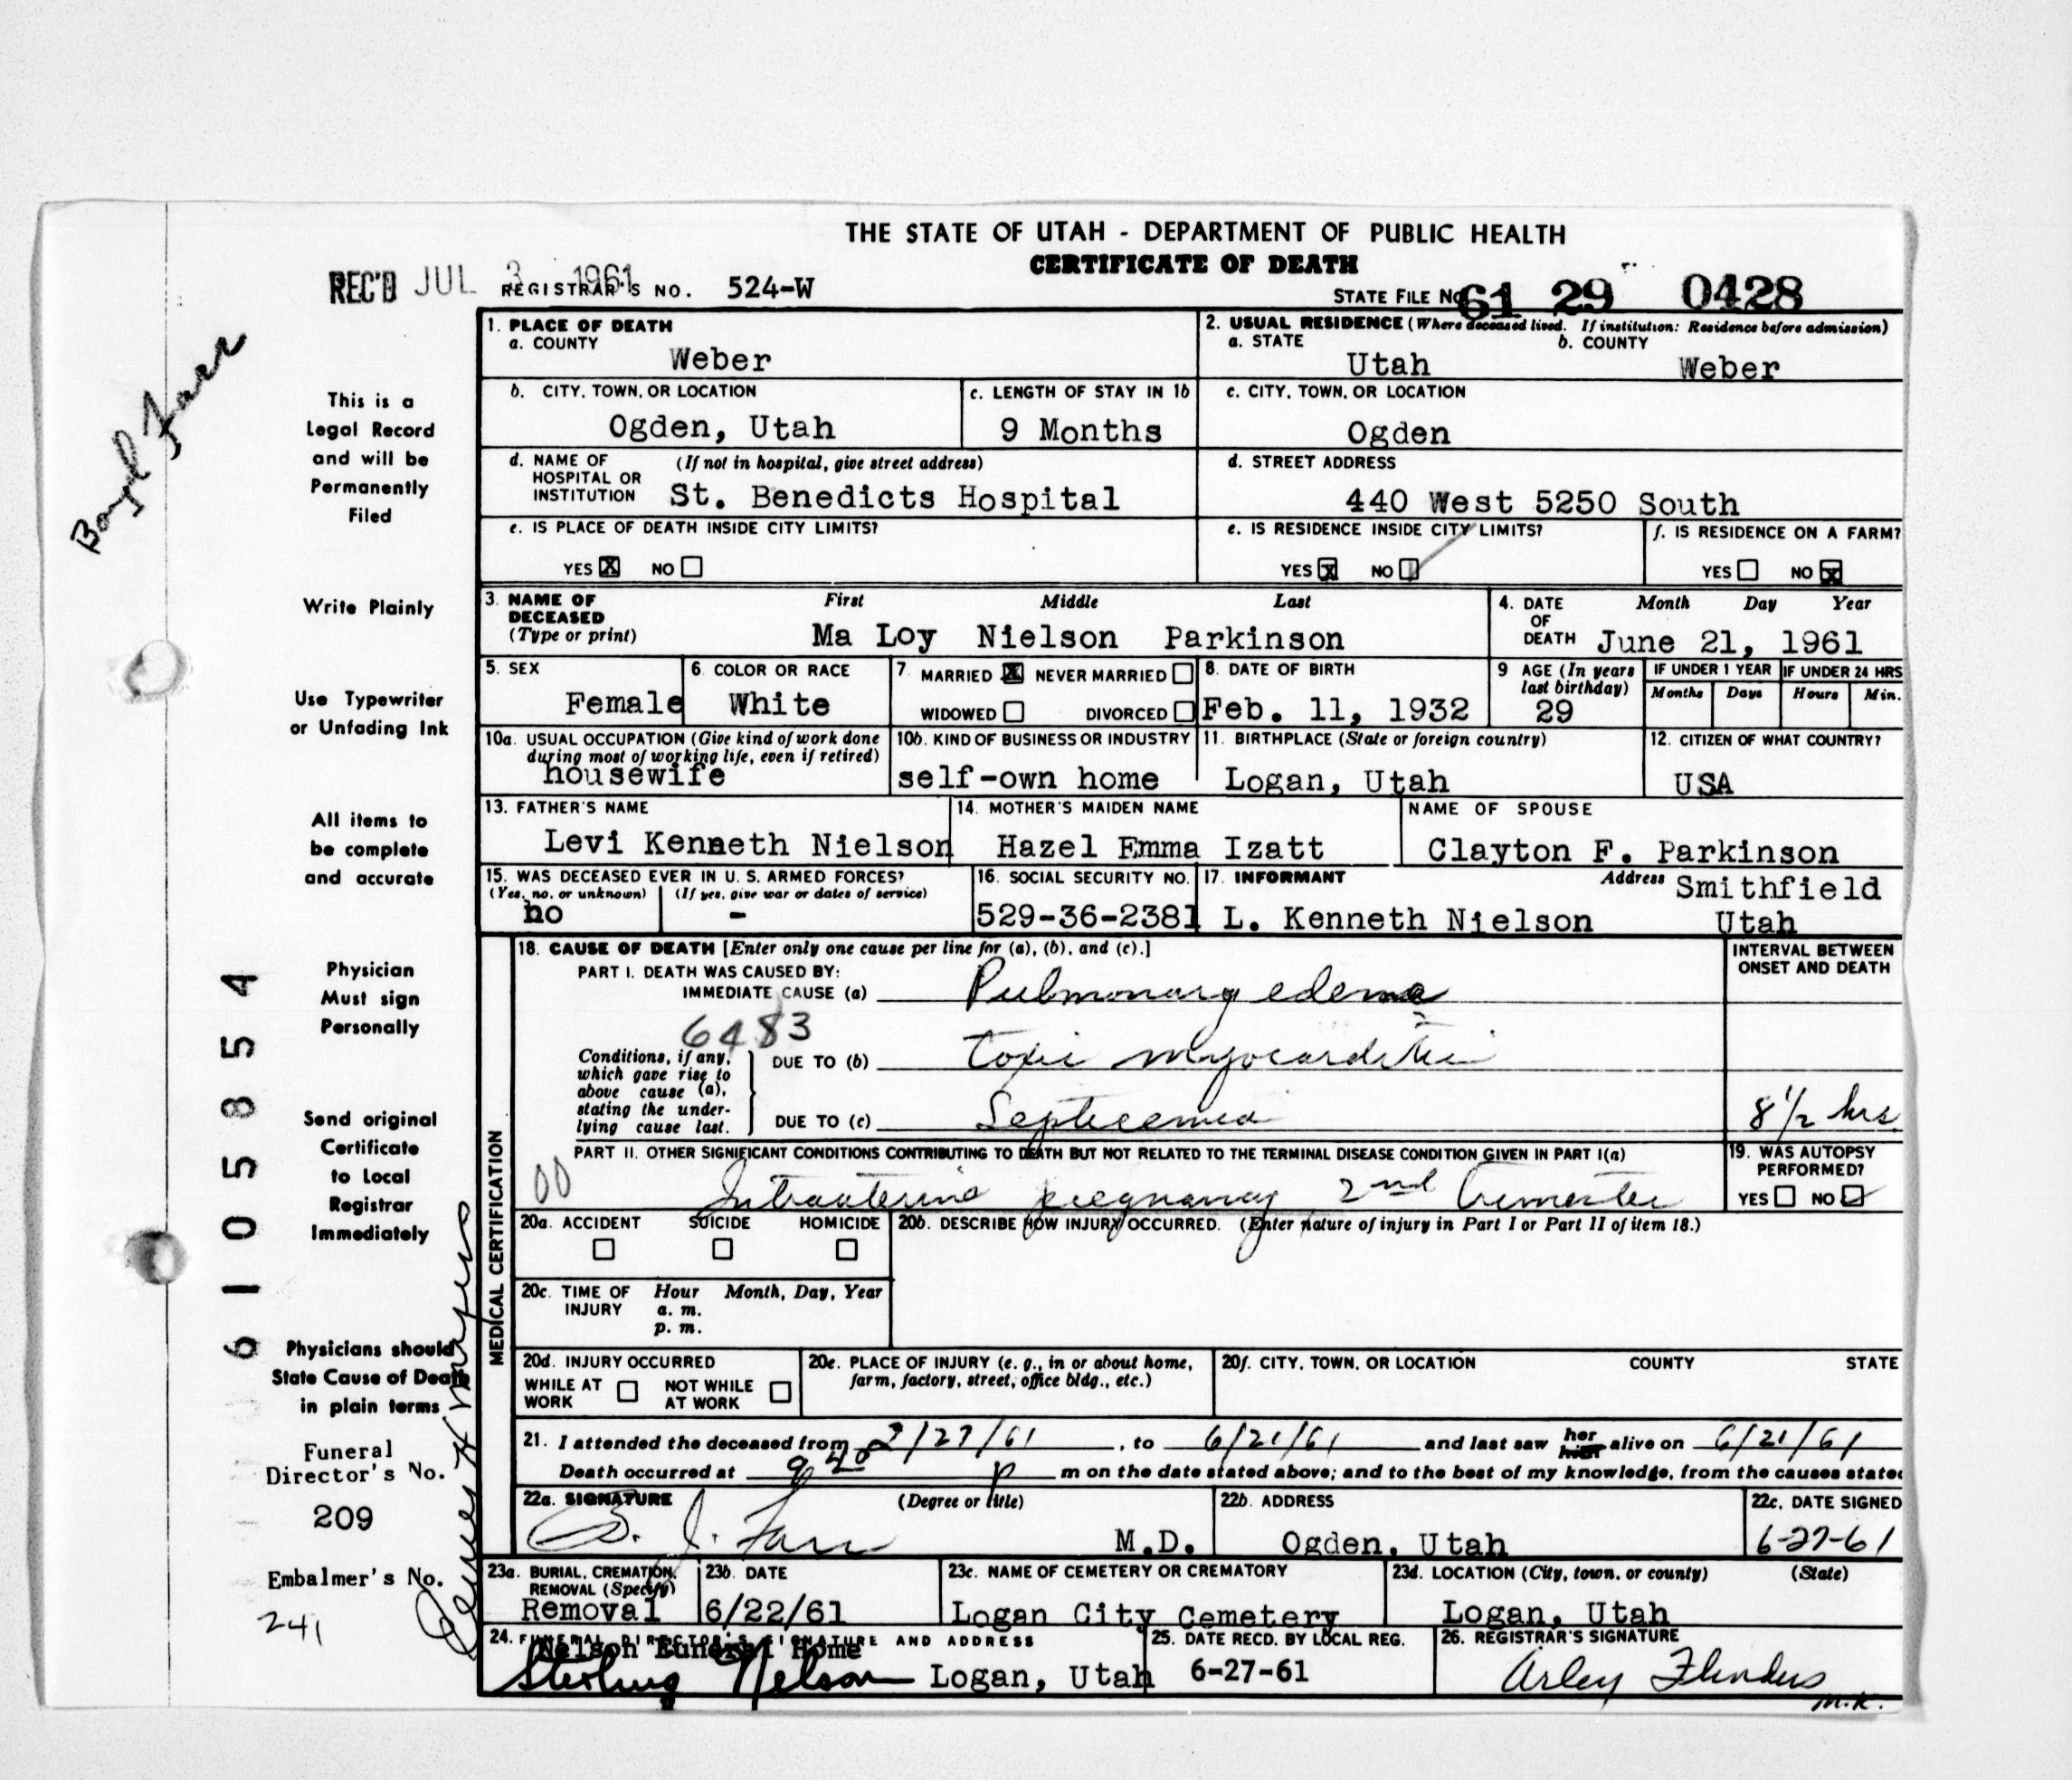 THE STATE OF UTAH - DEPARTMENT OF PUBLIC HEALTH
CERTIFICATE OF DEATH
REC'D JUL 3 1961 REGISTRAR'S NO. 524-W STATE FILE No. 61 29 0428
Boyd Farr
This is a
Legal Record
and will be
Permanently
Filed
Write Plainly
Use Typewriter
or Unfading Ink
All items to
be complete
and accurate
Physician
Must sign
Personally
Send original
Certificate
to Local
Registrar
Immediately
Physicians should
State Cause of Death
in plain terms
Funeral
Director's No.
209
Embalmer's No.
241
61058854
1. PLACE OF DEATH
a. COUNTY
Weber
2. USUAL RESIDENCE (Where deceased lived. If institution: Residence before admission)
a. STATE b. COUNTY
Utah Weber
b. CITY, TOWN, OR LOCATION
Ogden, Utah
c. LENGTH OF STAY IN 1b
9 Months
c. CITY, TOWN, OR LOCATION
Ogden
d. NAME OF (If not in hospital, give street address)
HOSPITAL OR
INSTITUTION St. Benedicts Hospital
d. STREET ADDRESS
440 West 5250 South
e. IS PLACE OF DEATH INSIDE CITY LIMITS?
YES X NO
e. IS RESIDENCE INSIDE CITY LIMITS?
YES X NO
f. IS RESIDENCE ON A FARM?
YES NO X
3. NAME OF First Middle Last
DECEASED
(Type or print) Ma Loy Nielson Parkinson
4. DATE Month Day Year
OF
DEATH June 21, 1961
5. SEX
Female
6. COLOR OR RACE
White
7. MARRIED X NEVER MARRIED
WIDOWED DIVORCED
8. DATE OF BIRTH
Feb. 11, 1932
9 AGE (In years
last birthday)
29
IF UNDER 1 YEAR IF UNDER 24 HRS
Months Days Hours Min.
10a. USUAL OCCUPATION (Give kind of work done
during most of working life, even if retired)
housewife
10b. KIND OF BUSINESS OR INDUSTRY
self-own home
11. BIRTHPLACE (State or foreign country)
Logan, Utah
12. CITIZEN OF WHAT COUNTRY?
USA
13. FATHER'S NAME
Levi Kenneth Nielson
14. MOTHER'S MAIDEN NAME
Hazel Emma Izatt
NAME OF SPOUSE
Clayton F. Parkinson
15. WAS DECEASED EVER IN U. S. ARMED FORCES?
(Yes, no, or unknown) (If yes, give war or dates of service)
no -
16. SOCIAL SECURITY NO.
529-36-2381
17. INFORMANT Address Smithfield
L. Kenneth Nielson Utah
MEDICAL CERTIFICATION
18. CAUSE OF DEATH [Enter only one cause per line for (a), (b), and (c).]
INTERVAL BETWEEN
ONSET AND DEATH
PART I. DEATH WAS CAUSED BY:
IMMEDIATE CAUSE (a) Pulmonary edema
6483
Conditions, if any,
which gave rise to
above cause (a),
stating the under-
lying cause last.
DUE TO (b) toxic myocarditis
DUE TO (c) Septicemia 8 1/2 hrs
PART II. OTHER SIGNIFICANT CONDITIONS CONTRIBUTING TO DEATH BUT NOT RELATED TO THE TERMINAL DISEASE CONDITION GIVEN IN PART I(a)
00 Intrauterine pregnancy 2nd trimester
19. WAS AUTOPSY
PERFORMED?
YES NO
20a. ACCIDENT SUICIDE HOMICIDE
20b. DESCRIBE HOW INJURY OCCURRED. (Enter nature of injury in Part I or Part II of item 18.)
20c. TIME OF Hour Month, Day, Year
INJURY a. m.
p. m.
20d. INJURY OCCURRED
WHILE AT NOT WHILE
WORK AT WORK
20e. PLACE OF INJURY (e. g., in or about home,
farm, factory, street, office bldg., etc.)
20f. CITY, TOWN, OR LOCATION COUNTY STATE
21. I attended the deceased from 2/27/61, to 6/21/61 and last saw her him alive on 6/21/61
Death occurred at 9 40 p m on the date stated above; and to the best of my knowledge, from the causes stated
22a. SIGNATURE (Degree or title)
B. J. Farr M.D.
22b. ADDRESS
Ogden, Utah
22c. DATE SIGNED
6-27-61
23a. BURIAL, CREMATION,
REMOVAL (Specify)
Removal
23b. DATE
6/22/61
23c. NAME OF CEMETERY OR CREMATORY
Logan City Cemetery
23d. LOCATION (City, town, or county) (State)
Logan, Utah
24. FUNERAL DIRECTOR'S SIGNATURE AND ADDRESS
Nelson Funeral Home
Sterling Nelson Logan, Utah
25. DATE RECD. BY LOCAL REG.
6-27-61
26. REGISTRAR'S SIGNATURE
Arley Flinders
m.k.